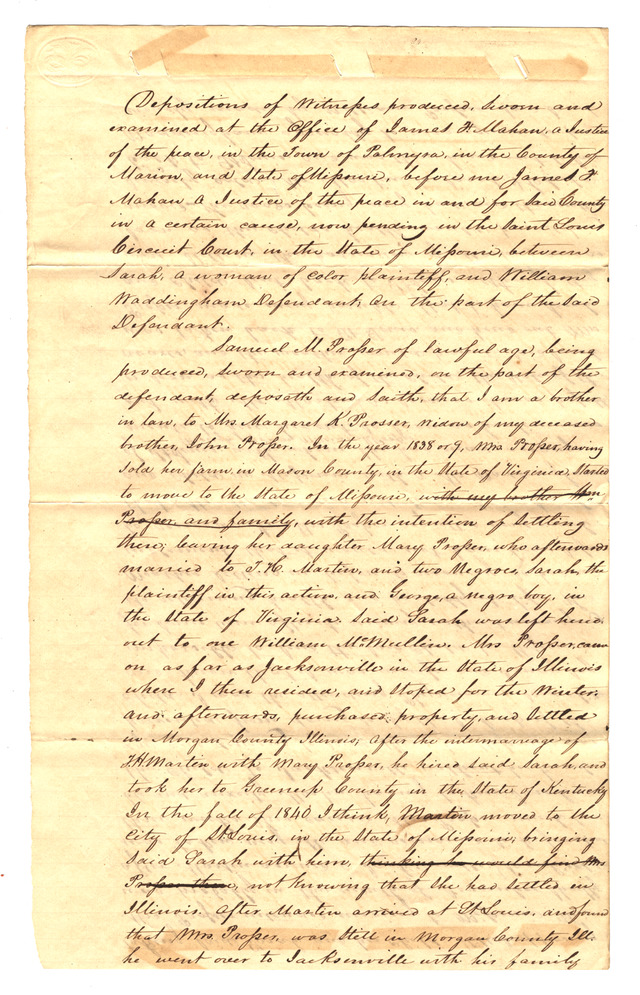 Depositions of Witnesses produced, sworn and
examined at the Office of James F. Mahan, a Justice
of the peace, in the Town of Palmyra, in the County of
Marion, and State of Missouri, before me James F.
Mahan a Justice of the peace in and for said County
in a certain cause, now pending in the Saint Louis
Circuit Court, in the State of Missouri, between
Sarah, a woman of color plaintiff, and William
Waddingham Defendant, on the part of the said
Defendant.
Samuel M. Prosser of lawful age, being
produced, sworn and examined, on the part of the
defendant, deposath and saith, that I am a brother
in law, to Mrs Margaret K. Prosser, widow of my deceased
brother, John Prosser. In the year 1838 or 9, Mrs Prosser, having
sold her farm, in Mason County, in the State of Virginia, started
to move to the State of Missouri, with my brother Wm
Prosser and family, with the intention of settling
there; leaving her daughter Mary Prosser, who afterwards
married to T. H. Martin, and two Negroes, Sarah, the
plaintiff in this action, and George, a negro boy, in
the State of Virginia. Said Sarah was left hired
out to one William McMullin. Mrs Prosser, came
on as far as Jacksonville in the State of Illinois
where I then resided, and stoped for the Winter,
and afterwards, purchased, property, and settled
in Morgan County Illinois; After the intermarriage of
T H Marten with Mary Prosser, he hired said Sarah, and
took her to Greenup County in the State of Kentucky
In the fall of 1840 I think, Martin moved to the
City of St. Louis, in the State of Missouri; bringing
said Sarah with him, thinking he would find Mrs
Prosser there, not knowing that she had settled in
Illinois. After Marten arrived at St Louis, and found
that Mrs. Prosser, was still in Morgan County Ill.
he went over to Jacksonville with his family